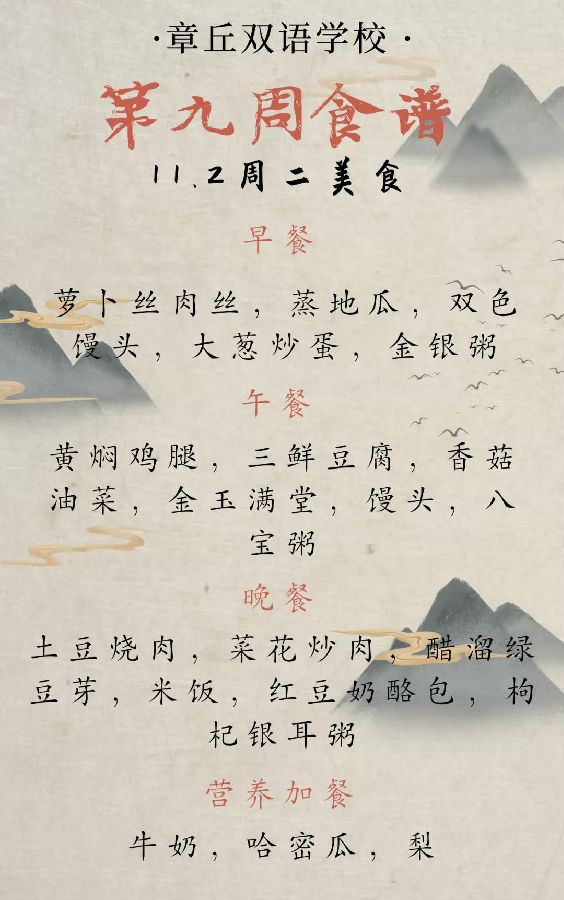 ·章丘双语学校·
第九周食谱
11.2周二美食
早餐
萝卜丝肉丝，蒸地瓜，双色
馒头，大葱炒蛋，金银粥
午餐
黄焖鸡腿，三鲜豆腐，香菇
油菜，金玉满堂，馒头，八
宝粥
晚餐
土豆烧肉，菜花炒肉，醋溜绿
豆芽，米饭，红豆奶酪包，枸
杞银耳粥
营养加餐
牛奶，哈密瓜，梨